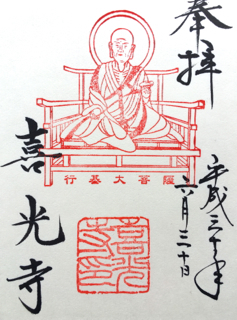 奉拝
平成三十年
六月三十日
行基大菩薩
喜光寺